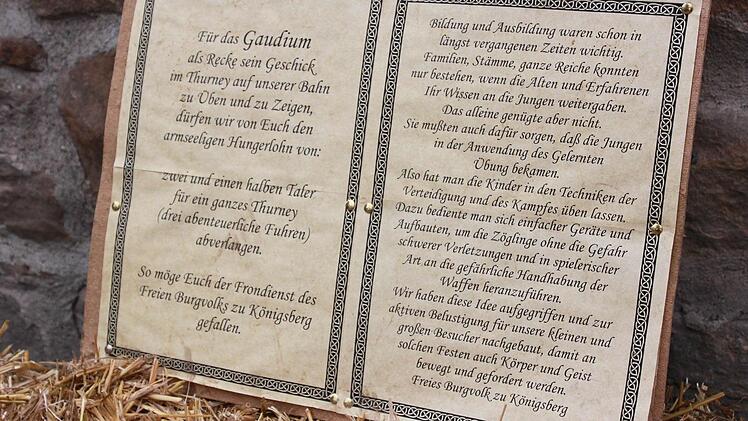 Für das Gaudium
als Recke sein Geschick
im Thurney auf unserer Bahn
zu Üben und zu Zeigen,
dürfen wir von Euch den
armseeligen Hungerlohn von:
zwei und einen halben Taler
für ein ganzes Thurney
(drei abenteuerliche Fuhren)
abverlangen.
So möge Euch der Frondienst des
Freien Burgvolks zu Königsberg
gefallen.
Bildung und Ausbildung waren schon in
längst vergangenen Zeiten wichtig.
Familien, Stämme, ganze Reiche konnten
nur bestehen, wenn die Alten und Erfahrenen
Ihr Wissen an die Jungen weitergaben.
Das alleine genügte aber nicht.
Sie mußten auch dafür sorgen, daß die Jungen
in der Anwendung des Gelernten
Übung bekamen.
Also hat man die Kinder in den Techniken der
Verteidigung und des Kampfes üben lassen.
Dazu bediente man sich einfacher Geräte und
Aufbauten, um die Zöglinge ohne die Gefahr
schwerer Verletzungen und in spielerischer
Art an die gefährliche Handhabung der
Waffen heranzuführen.
Wir haben diese Idee aufgegriffen und zur
aktiven Belustigung für unsere kleinen und
großen Besucher nachgebaut, damit an
solchen Festen auch Körper und Geist
bewegt und gefordert werden.
Freies Burgvolk zu Königsberg